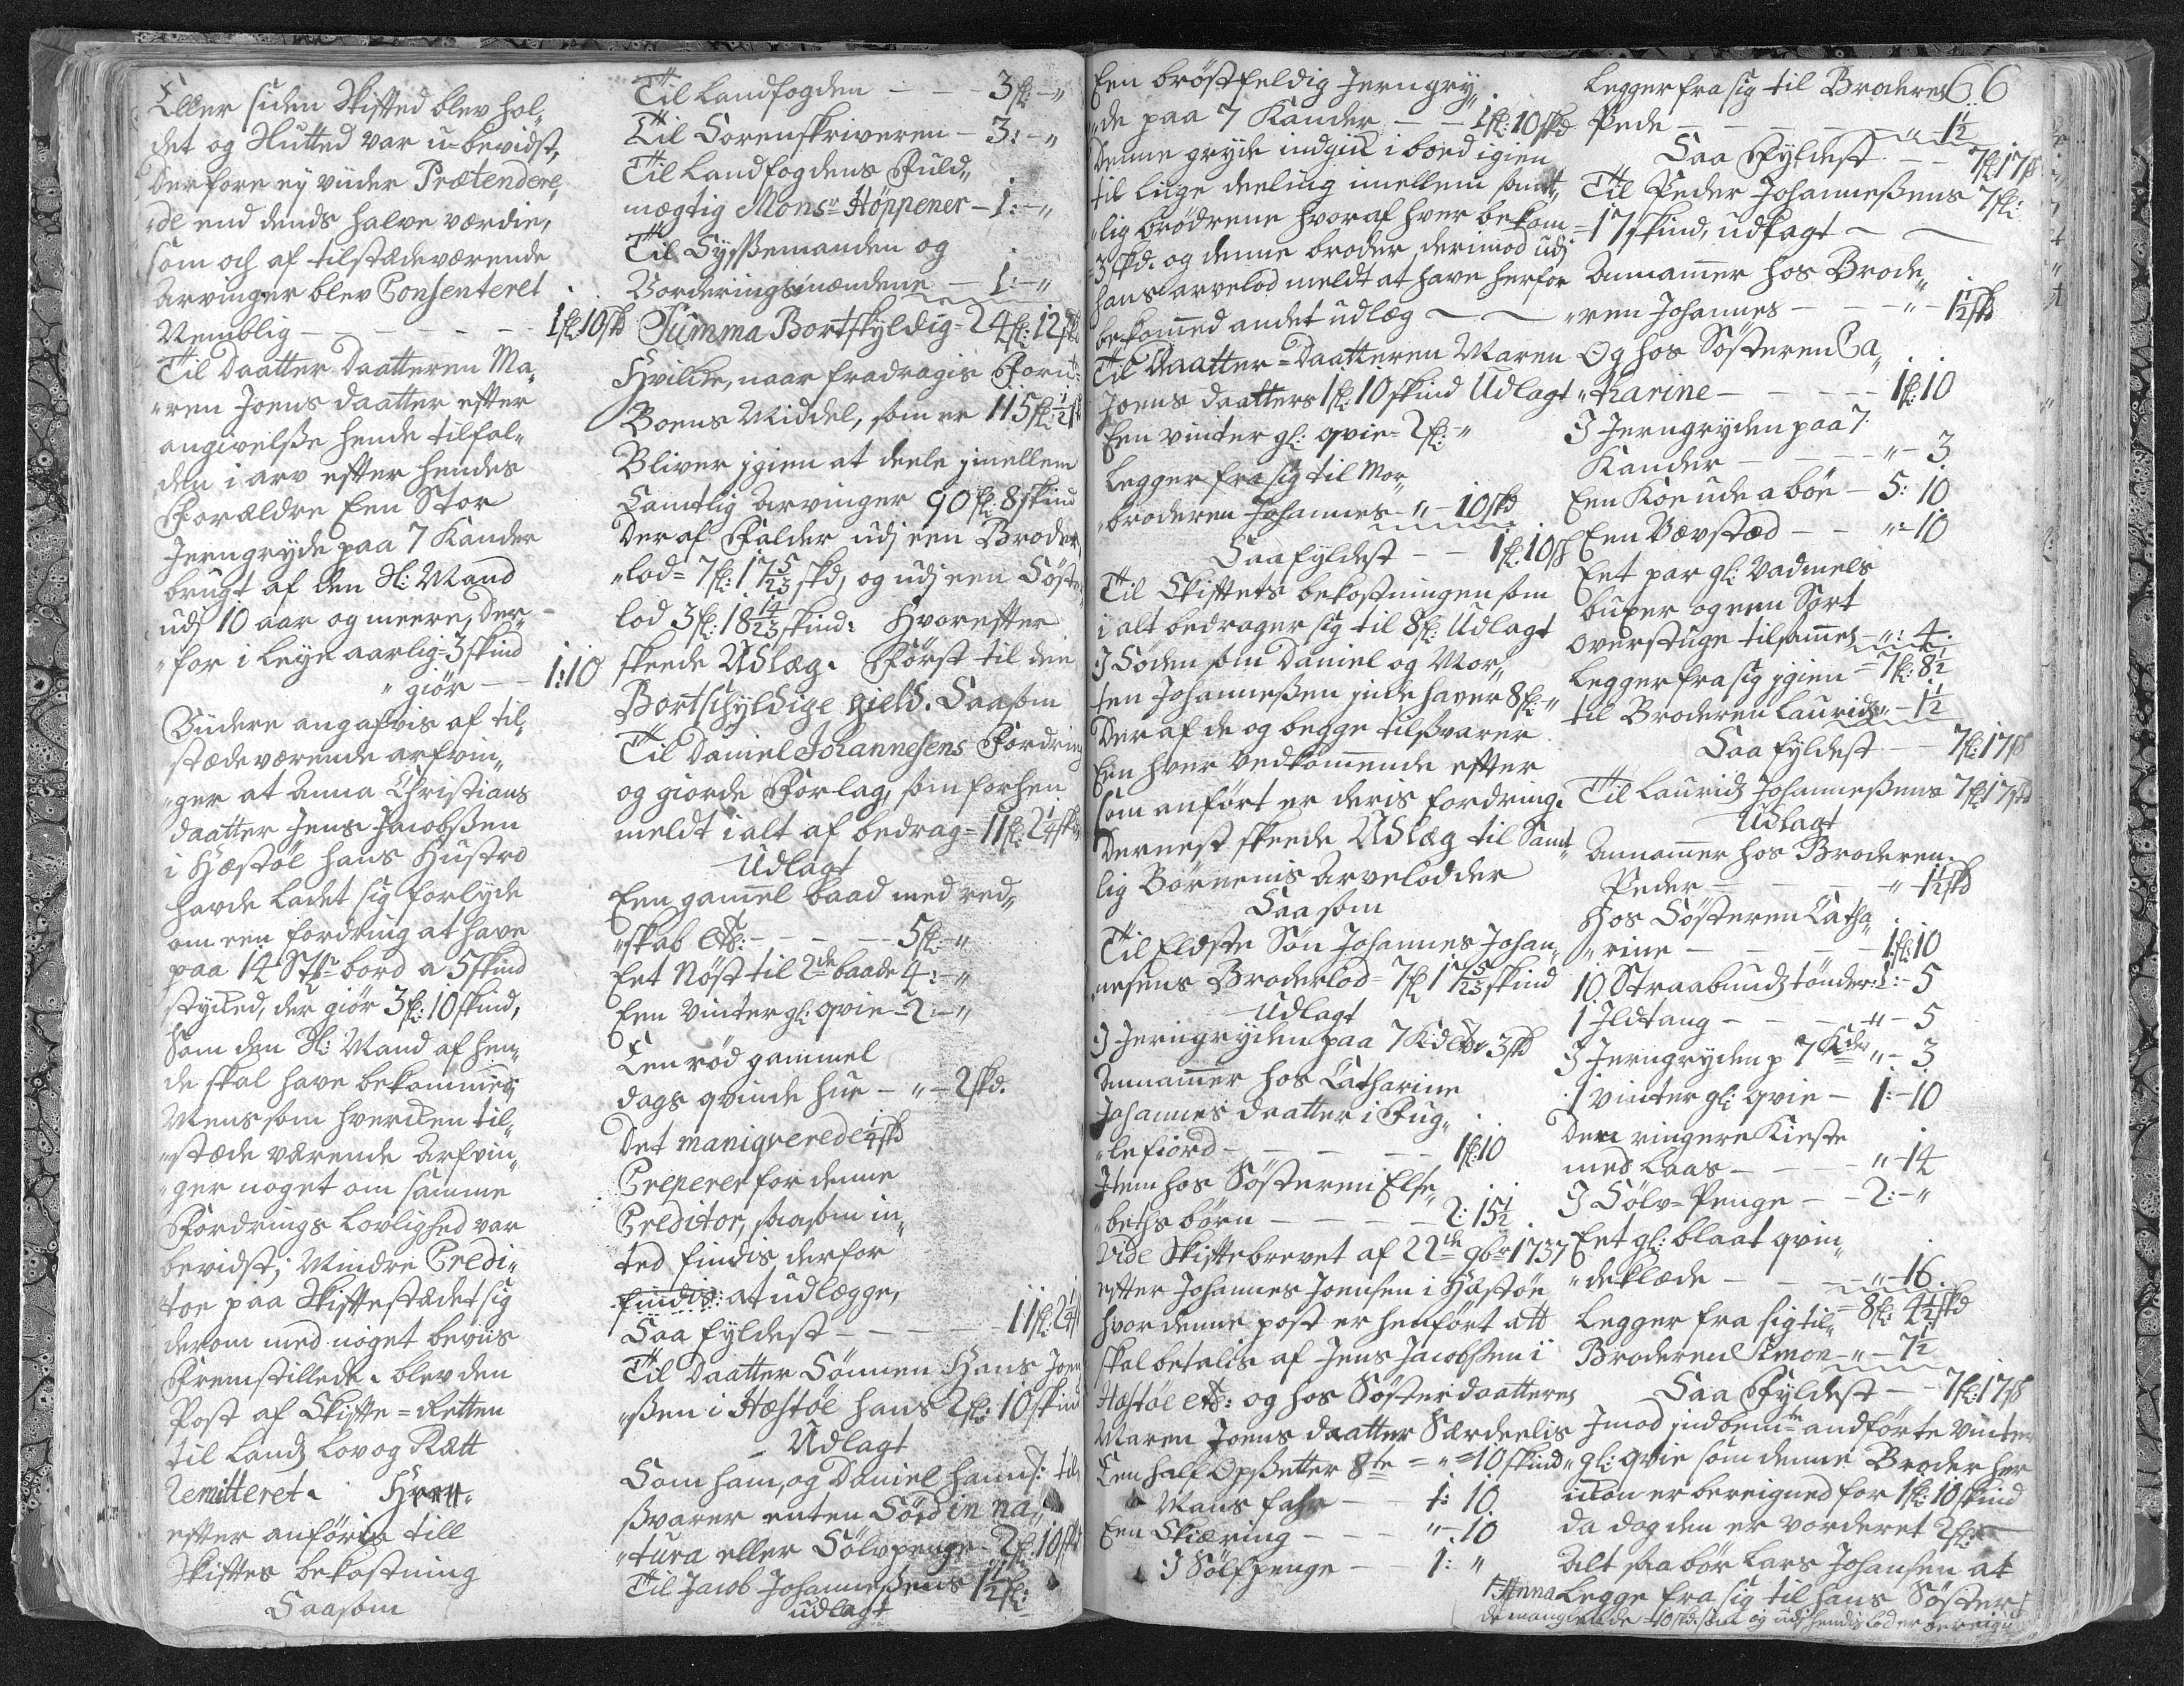 Eller siden Skifted blev hol„
det og Nutted var u-bevidst,
Derfore ey viider Prætendere„
„de end dends halve værdie,
som och af tilstædeværende
Arvinger blev Consenteret
Nemblig - - - - - 1fl: 10skd
Til Daatter Daatteren Ma„
„ren Joens daatter efter
angivelsse hende tilfal„
den i arv efter hendes
Forældre Een Stor
Jerngryde paa 7 Kander
brugt af den Sl: Mand
udj 10 aar og meere, Der„
„for i Leye aarlig 3 skind
„giør - - 1:10
Viidere angafvis af til„
stædeværende arfvin„
„ger at Anna Christians
daatter Jens Jacobssen
i Hæstøe hans Hustro
havde ladet sig forlyde
om een fordring at have
paa 14 St: bord a 5 skind
stycked, der giør 3 fl: 10 skind,
Som den Sl: Mand af hen„
de skal have bekommed;
Mens som hvercken til„
„stæde værende Arfvin„
„ger noget om samme
Fordrings Lovlighed var
bevidst; Mindre Credi„
„tor paa Skiftestædet sig
derom med noget beviis
Fremstillede. blev den
Post af Skifte=Retten
til Landz Lov og Rætt
Remitteret. Hver„
efter anføris till
Skiftes bekostning
Saasom
Til Landfogden - - - 3fl: - „
Til Sorenskriveren - 3: - „
Til Landfogdens Fuld„
mægtig Monsr Höppener - 1: - „
Til Sysselmanden og
Vorderingsmændene - 1: - „
Summa Bortskyldig = 24 fl: 12 skd
Hvilcke, naar fradragis Forn:te
Boens Middel, som er 115 fl: ½ sk
Bliver jgien at deele jmellem
Samtlig Arvinger 90 fl: 8 skind
Deraf Falder udj een Broder„
„lod = 7 fl: 17 5/23 skd, og udj een Søster„
lod 3 fl: 18 14/23 skind: Hvorefter
skeede Udlæg. Først til den
Bortschyldige gield. Saasom
Til Daniel Johannesens Fordring
og giorde Forlag, som forhen
meldt i alt af bedrag = 11 fl: 2¼ skd
Udlagt
Een gammel baad med red„
„skab etc: - - - - 5 fl: - „
Eet Nøst til 2de baade 4: - „
Een Vinter gl: qvie - 2: - „
Een rød gammel
dags qvinde hue - „ - 2 skd.
Det manqverede ¼ skd
Creperer for denne
Creditor, saasom in„
ted findis derfor
findis: at udlægge,
Saa fyldest - - - - 11 fl: 2¼ sk
Til Daatter Sönnen Hans Joen„
„sen i Hæstøe hans 2 fl: 10 skind
Udlagt
Som ham, og Daniel hannd: til„
svarer enten Föd in na„
„tura eller Sölvpenge - 2 fl: 10 skd
Til Jacob Johannessens 1½ fl:
udlagt
Een brøstfeldig Jerngry„
„de paa 7 Kander - - 1 fl: 10 skd
Denne gryde indgick i boed igien
til liige deeling imellem samt„
„lig brødrene hvoraf hver bekom
3 skd. og denne broder derimod udj
hans arvelod meldt at have herfor
bekommed andet udlæg - -
Til Daatter=Daatteren Maren
Joens daatters 1 fl: 10 skind Udlagt
Een vinter gl: qvie = 2 fl: - „
Legger fra sig til Mor„
„broderen Johannes - „ - 10 skd
Saa fyldest - - 1 fl: 10 sk
Til Skiftets bekostningen som
i alt bedrager sig til 8 fl: Udlagt
I Føden som Daniel og Mor„
ten Johannessen jnde haver 8 fl: - „
Deraf de og begge tilssvarer
Een hver vedkommende efter
som anført er deris fordring.
Dernest skeede Udlæg til Samt„
lig Børnenis Arvelodder
Saasom
Til Eldste Søn Johannes Johan„
„nesens Broderlod = 7 fl: 17 5/23 skind
Udlagt
I Jerngryden paa 7 Kder 3 skd
Annammer hos Catharine
Johannes daatter i Fug„
„lefiord - - - - 1 fl: 10
Item hos Søsteren Else„
„beths børn - - - - 2: 15½
Vide Skiftebrevet af 22de 9br 1737
efter Johannes Joensen i Hæstøe
hvor denne post er henført att
skal betalis af Jens Jacobssen i
Hæstøe etc: og hos Søster daatteren
Maren Joens daatter Særdeelis
Een half Opsetter 8te = „ = 10 skind
Mans Fahr - - 1: 10
Een Skiæring - - - „ - 10
I Sølfpenge - - 1: „
Legger fra sig til Broderen 66
Peder - - - - „ - 1½
Saa Fyldest - - 7 fl: 17 sk
Til Peder Johannessens 7 fl:
17 skind, udlagt - -
Annammer hos Brode„
„ren Johannes - - - „ - 1½ skd
Og hos Søsteren Ca„
„tharine - - - - 1 fl: 10
I Jerngryden paa 7.
Kander - - - - „ - 3
Een Koe ude a bøe - 5: 10
Een Vævstæd - - „ - 10
Eet par gl: Vadmels
buxer og een Sort
Overstuge tilsammen - „: 4.
= 7 fl: 8½
Legger fra sig jgien
til Broderen Lauridz „ - 1½
Saa fyldest - - 7 fl: 17 sk
Til Lauridz Johannessens 7 fl: 17 skd
Udlagt
Annammer hos Broderen
Peder - - - - „ - 1½ skd
Hos Søsteren Catha„
„rine - - - - 1 fl: 10
10 Straabundz tønder: 1: - 5
1 Ildtang - - - „ - 5
I Jerngryden p 7 Kder „ - 3
1 vinter gl: qvie - 1: - 10
Den ringere Kieste
med Laas - - - „ - 14
I Sölv=Penge - - 2: - „
Eet gl: blaat qvin„
„deklæde - - - „ - 16.
= 8 fl: 4½ skd
Legger fra sig til
Broderen Simon - „ - 7½
Saa Fyldest - - 7 fl: 17 sk
Jmod jndbemte andførte Vinter
gl: qvie som denne Broder her
udon er beregned for 1 fl: 10 skind
da dog den er vorderet 2 fl: -
Alt saa bør Lars Johansen at
Legge fra sig til hans Søster
Anna
de mangerende 10 skd. som og udj hendis lod er beregn